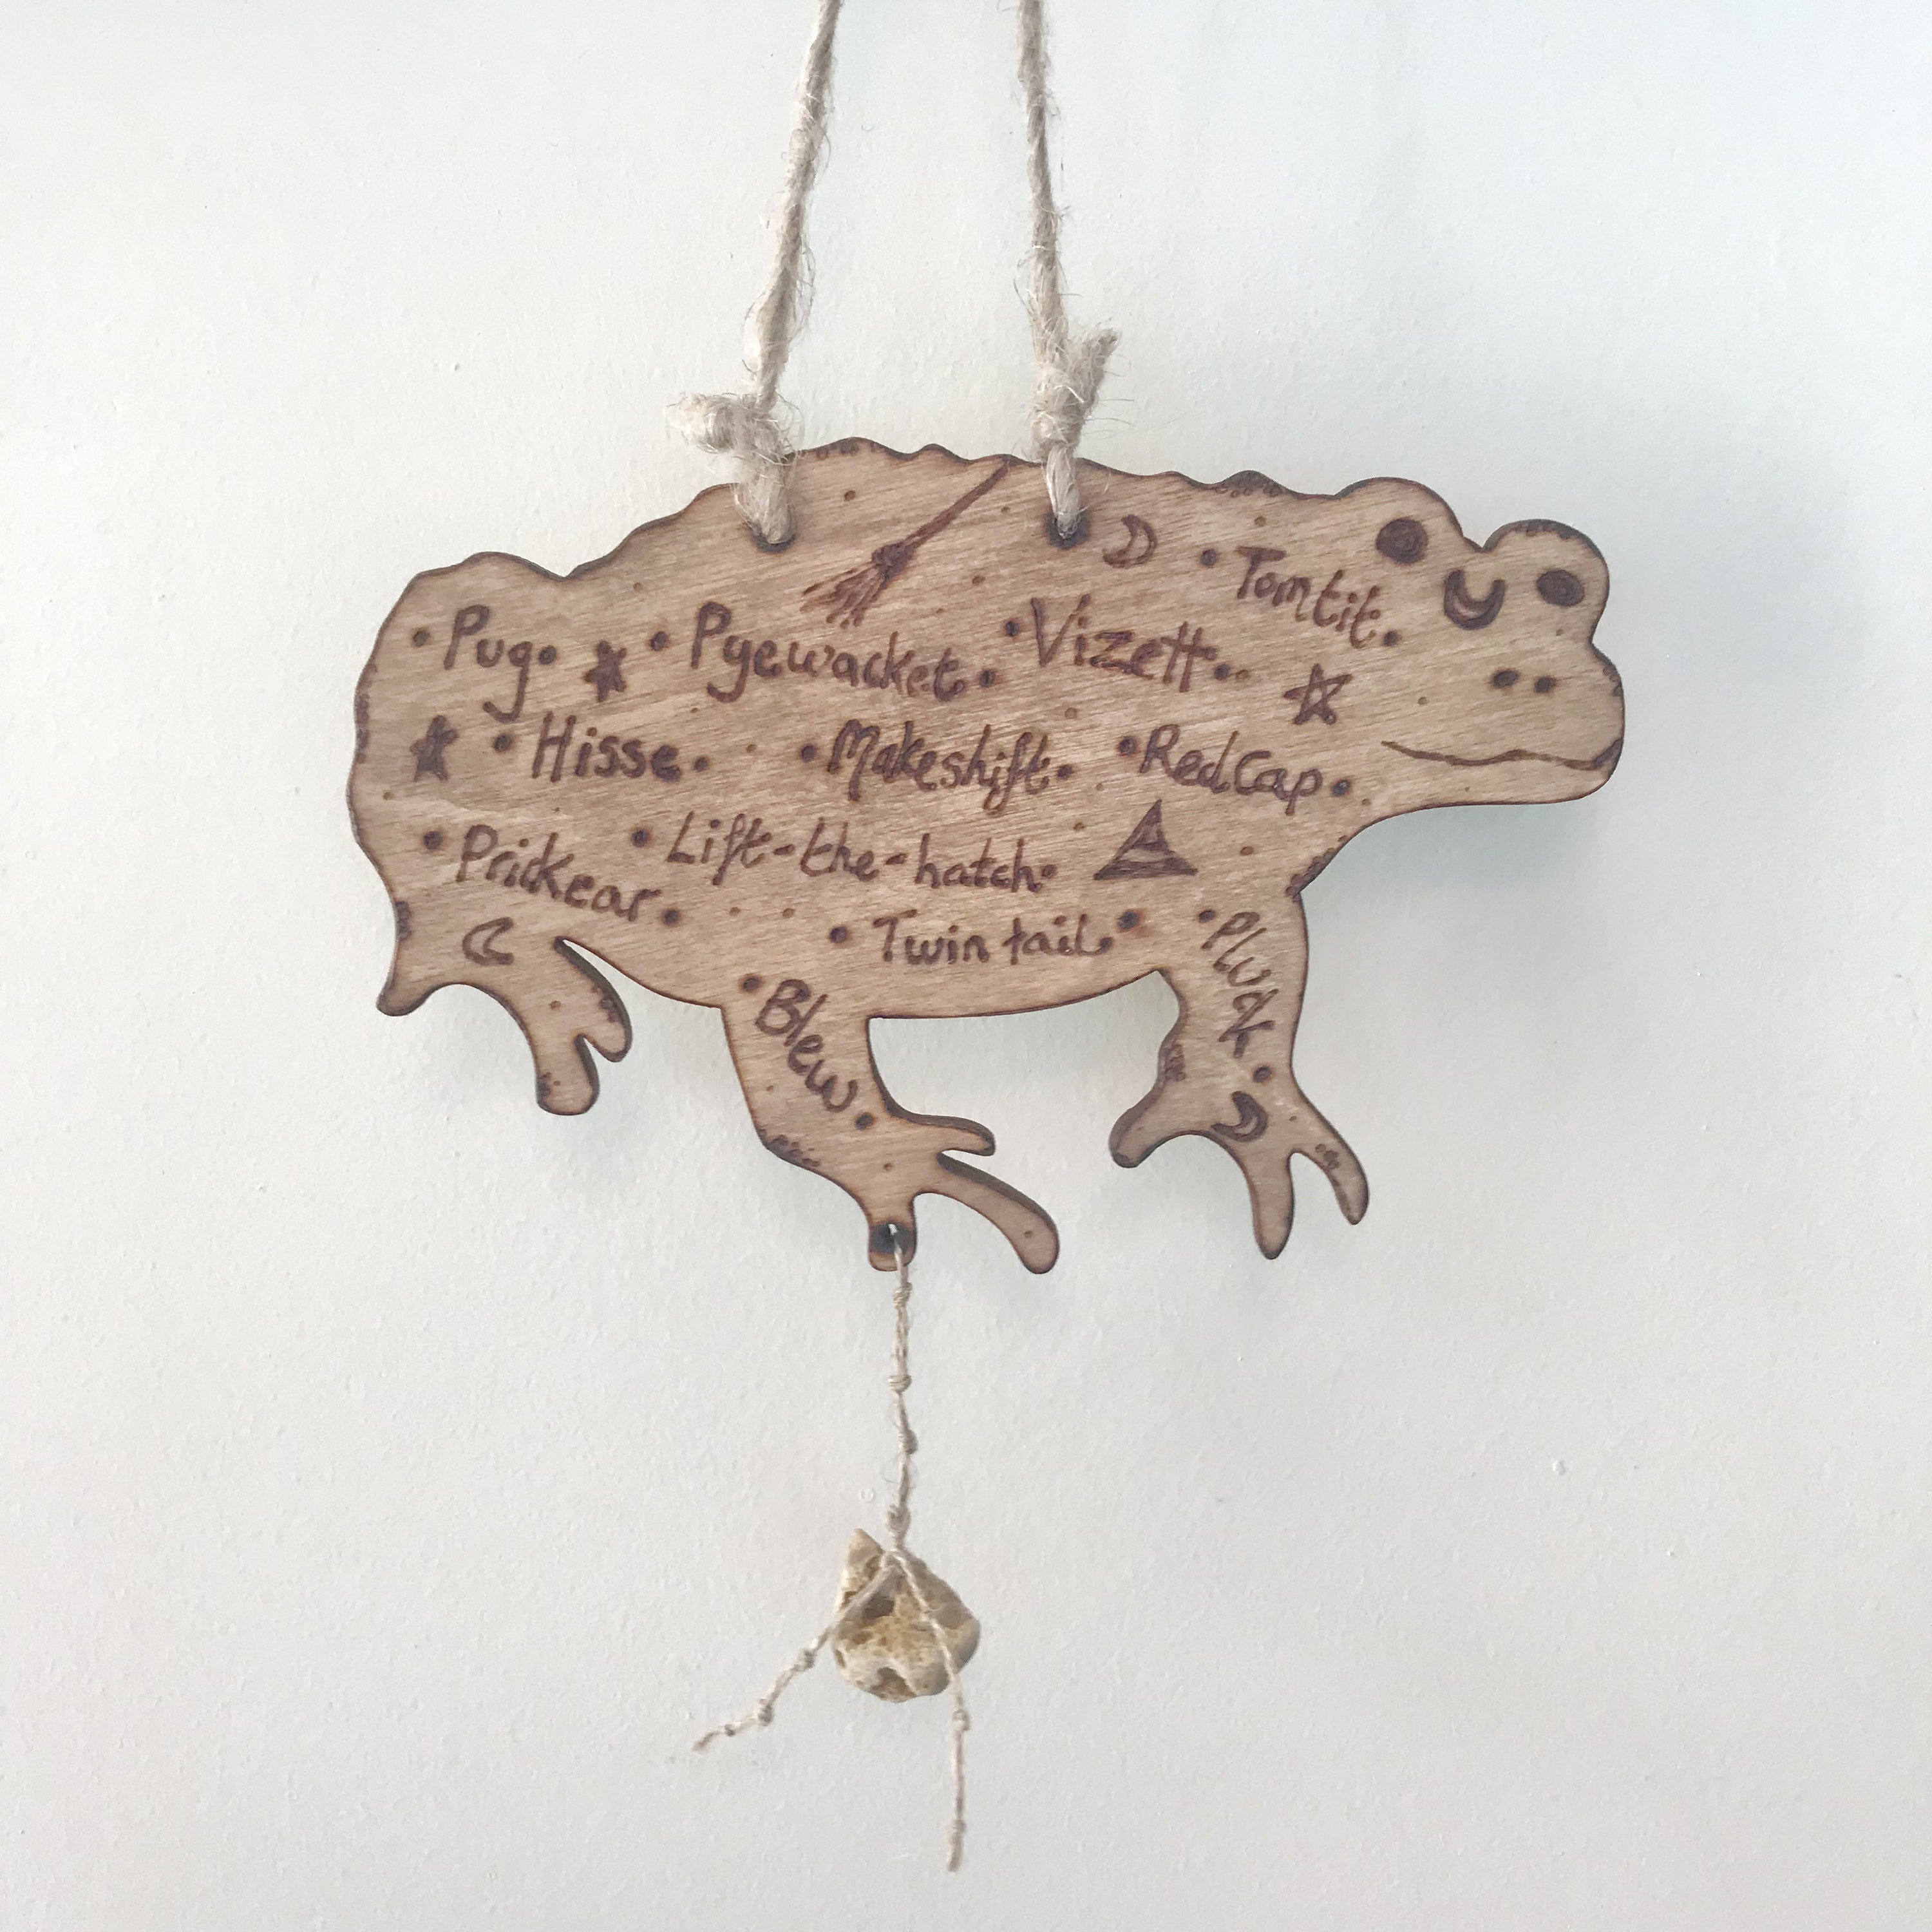 • Tomtit •
• Pug • • Pyewacket • • Vizett •
• Hisse • • Makeshift • • Red Cap •
• Prickear • • Lift-the-hatch •
• Twin tail • • Pluck •
• Blew •